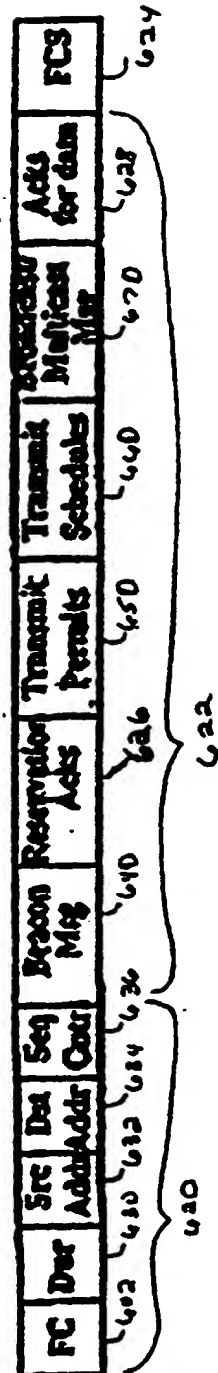 FC
Dur
Src
Addr
Dst
Addr
Seq
Cntr
Beacon
Msg
Reservation
Acks
Transmit
Permits
Transmit
Schedules
Broadcast/
Multicast
Msg
Acks
for data
FCS
602
630
632
634
636
640
626
650
660
670
628
624
620
622